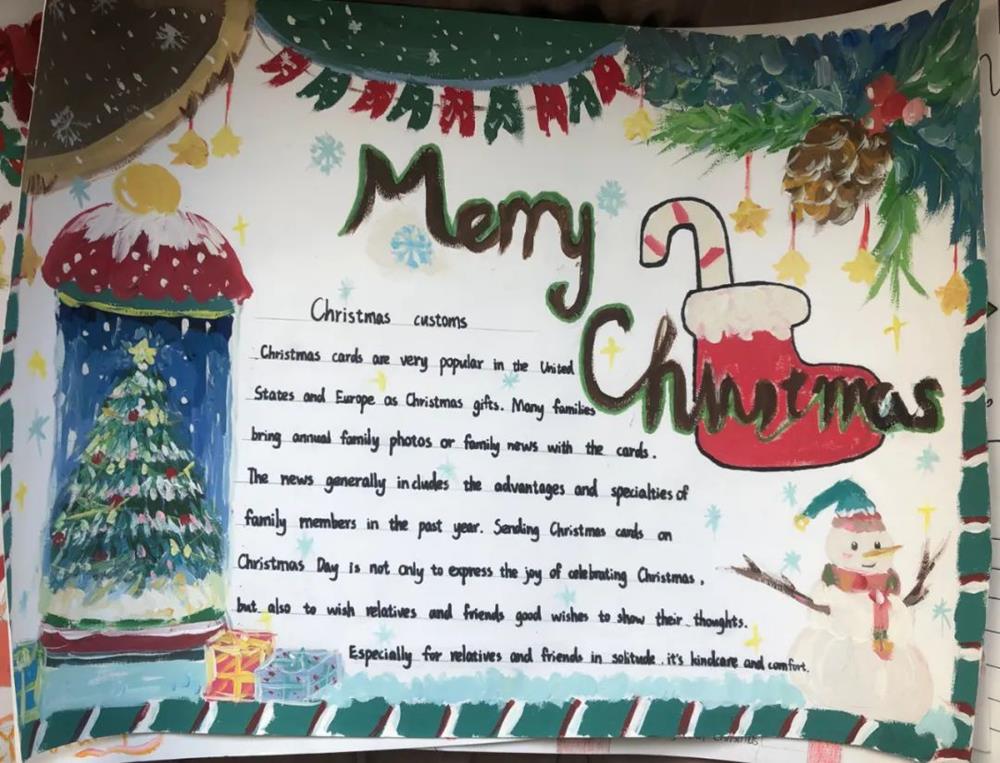 Merry
Christmas
Christmas customs
Christmas cards are very popular in the United
States and Europe as Christmas gifts. Many families
bring annual family photos or family news with the cards.
The news generally includes the advantages and specialties of
family members in the past year. Sending Christmas cards on
Christmas Day is not only to express the joy of celebrating Christmas,
but also to wish relatives and friends good wishes to show their thoughts.
Especially for relatives and friends in solitude. it's kindcare and comfort.